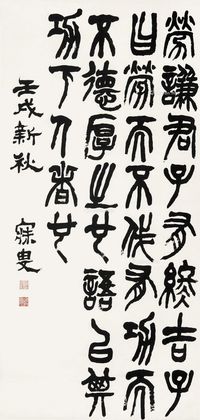 勞謙君子有終吉子
曰勞而不伐有功而
不德厚之也語以其
功下人者也
壬戌新秋
寐叟